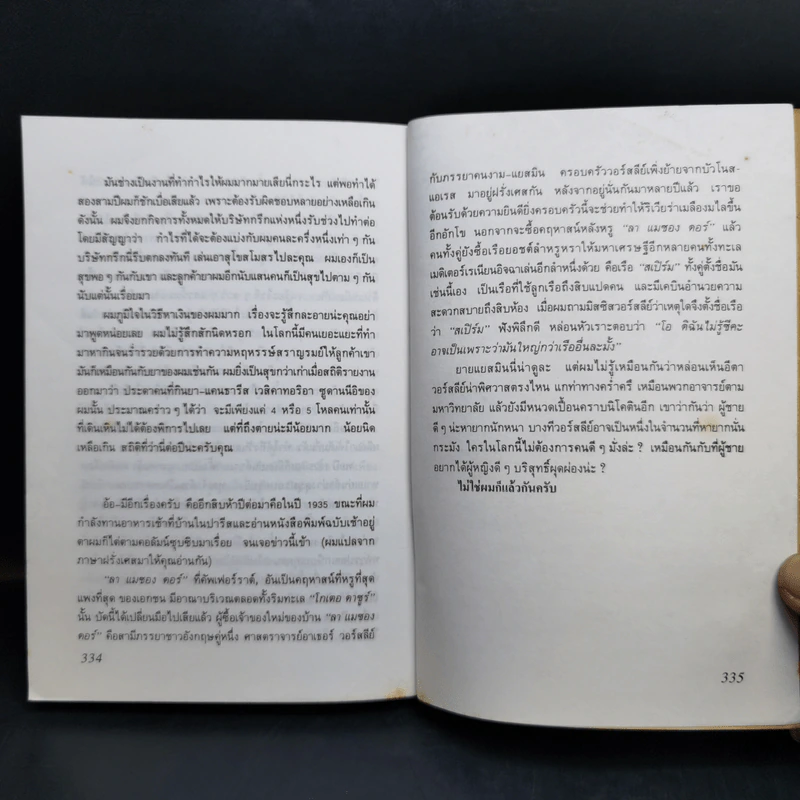 มันช่างเป็นงานที่ทำกำไรให้ผมมากมายเสียนี่กระไร แต่พอทำได้
สองสามปีผมก็ชักเบื่อเสียแล้ว เพราะต้องรับผิดชอบหลายอย่างเหลือเกิน
ดังนั้น ผมจึงยกกิจการทั้งหมดให้บริษัทกรีกแห่งหนึ่งรับช่วงไปทำต่อ
โดยมีสัญญาว่า กำไรที่ได้จะต้องแบ่งกับผมคนละครึ่งหนึ่งเท่า ๆ กัน
บริษัทกรีกนี้รีบตกลงทันที เล่นเอาสุโขสโมสรไปละคุณ ผมเองก็เป็น
สุขพอ ๆ กันกับเขา และลูกค้ายาผมอีกนับแสนคนก็เป็นสุขไปตาม ๆ กัน
นับแต่นั้นเรื่อยมา
ผมภูมิใจในวิธีหาเงินของผมมาก เรื่องจะรู้สึกละอายน่ะคุณอย่า
มาพูดหน่อยเลย ผมไม่รู้สึกสักนิดหรอก ในโลกนี้มีคนเยอะแยะที่ทำ
มาหากินจนร่ำรวยด้วยการทำความหฤหรรษ์สราญรมย์ให้ลูกค้าเขา
มันก็เหมือนกันกับยาของผมเช่นกัน ผมยิ่งเป็นสุขกว่าเก่าเมื่อสถิติรายงาน
ออกมาว่า ประดาคนที่กินยา-แคนธาริส เวสิคาทอริอา ซูดานนีอิของ
ผมนั้น ประมาณคร่าว ๆ ได้ว่า จะมีเพียงแค่ 4 หรือ 5 โหลคนเท่านั้น
ที่เดินเหินไม่ได้ต้องพิการไปเลย แต่ที่ถึงตายน่ะมีน้อยมาก น้อยนิด
เหลือเกิน สถิติที่ว่านี่ต่อปีนะครับคุณ
อ้อ-มีอีกเรื่องครับ คืออีกสิบห้าปีต่อมาคือในปี 1935 ขณะที่ผม
กำลังทานอาหารเช้าที่บ้านในปารีสและอ่านหนังสือพิมพ์ฉบับเช้าอยู่
ตาผมก็ไต่ตามคอลัมน์ซุบซิบมาเรื่อย จนเจอข่าวนี้เข้า (ผมแปลจาก
ภาษาฝรั่งเศสมาให้คุณอ่านกัน)
"ลา แมซอง ดอร์" ที่คัพเฟอร์ราต์, อันเป็นคฤหาสน์ที่หรูที่สุด
แพงที่สุด ของเอกชน มีอาณาบริเวณตลอดทั้งริมทะเล "โกเตอ ดาซูร์"
นั้น บัดนี้ได้เปลี่ยนมือไปเสียแล้ว ผู้ซื้อเจ้าของใหม่ของบ้าน "ลา แมซอง
ดอร์" คือสามีภรรยาชาวอังกฤษคู่หนึ่ง ศาสตราจารย์อาเธอร์ วอร์สลีย์
334
กับภรรยาคนงาม-แยสมิน ครอบครัววอร์สลีย์เพิ่งย้ายจากบัวโนส-
แอเรส มาอยู่ฝรั่งเศสกัน หลังจากอยู่นั่นกันมาหลายปีแล้ว เราขอ
ต้อนรับด้วยความยินดียิ่งครอบครัวนี้จะช่วยทำให้ริเวียร่าเมลืองมไลขึ้น
อีกอักโข นอกจากจะซื้อคฤหาสน์หลังหรู "ลา แมซอง ดอร์" แล้ว
คนทั้งคู่ยังซื้อเรือยอชต์ลำหรูหราให้มหาเศรษฐีอีกหลายคนทั้งทะเล
เมดิเตอร์เรเนียนอิจฉาเล่นอีกลำหนึ่งด้วย คือเรือ "สเปิร์ม" ทั้งคู่ตั้งชื่อมัน
เช่นนี้เอง เป็นเรือที่ใช้ลูกเรือถึงสิบแปดคน และมีเคบินอำนวยความ
สะดวกสบายถึงสิบห้อง เมื่อผมถามมิสซิสวอร์สลีย์ว่าเหตุใดจึงตั้งชื่อเรือ
ว่า "สเปิร์ม" ฟังพิลึกดี หล่อนหัวเราะตอบว่า "โอ ดิฉันไม่รู้ซีคะ
อาจเป็นเพราะว่ามันใหญ่กว่าเรืออื่นละมั้ง"
ยายแยสมินนี่น่าดูละ แต่ผมไม่รู้เหมือนกันว่าหล่อนเห็นอีตา
วอร์สลีย์น่าพิศวาสตรงไหน แกท่าทางคร่ำครึ เหมือนพวกอาจารย์ตาม
มหาวิทยาลัย แล้วยังมีหนวดเปื้อนคราบนิโคตินอีก เขาว่ากันว่า ผู้ชาย
ดี ๆ น่ะหายากนักหนา บางทีวอร์สลีย์อาจเป็นหนึ่งในจำนวนที่หายากนั่น
กระมัง ใครในโลกนี้ไม่ต้องการคนดี ๆ มั่งล่ะ ? เหมือนกันกับที่ผู้ชาย
อยากได้ผู้หญิงดี ๆ บริสุทธิ์ผุดผ่องน่ะ ?
ไม่ใช่ผมก็แล้วกันครับ
335